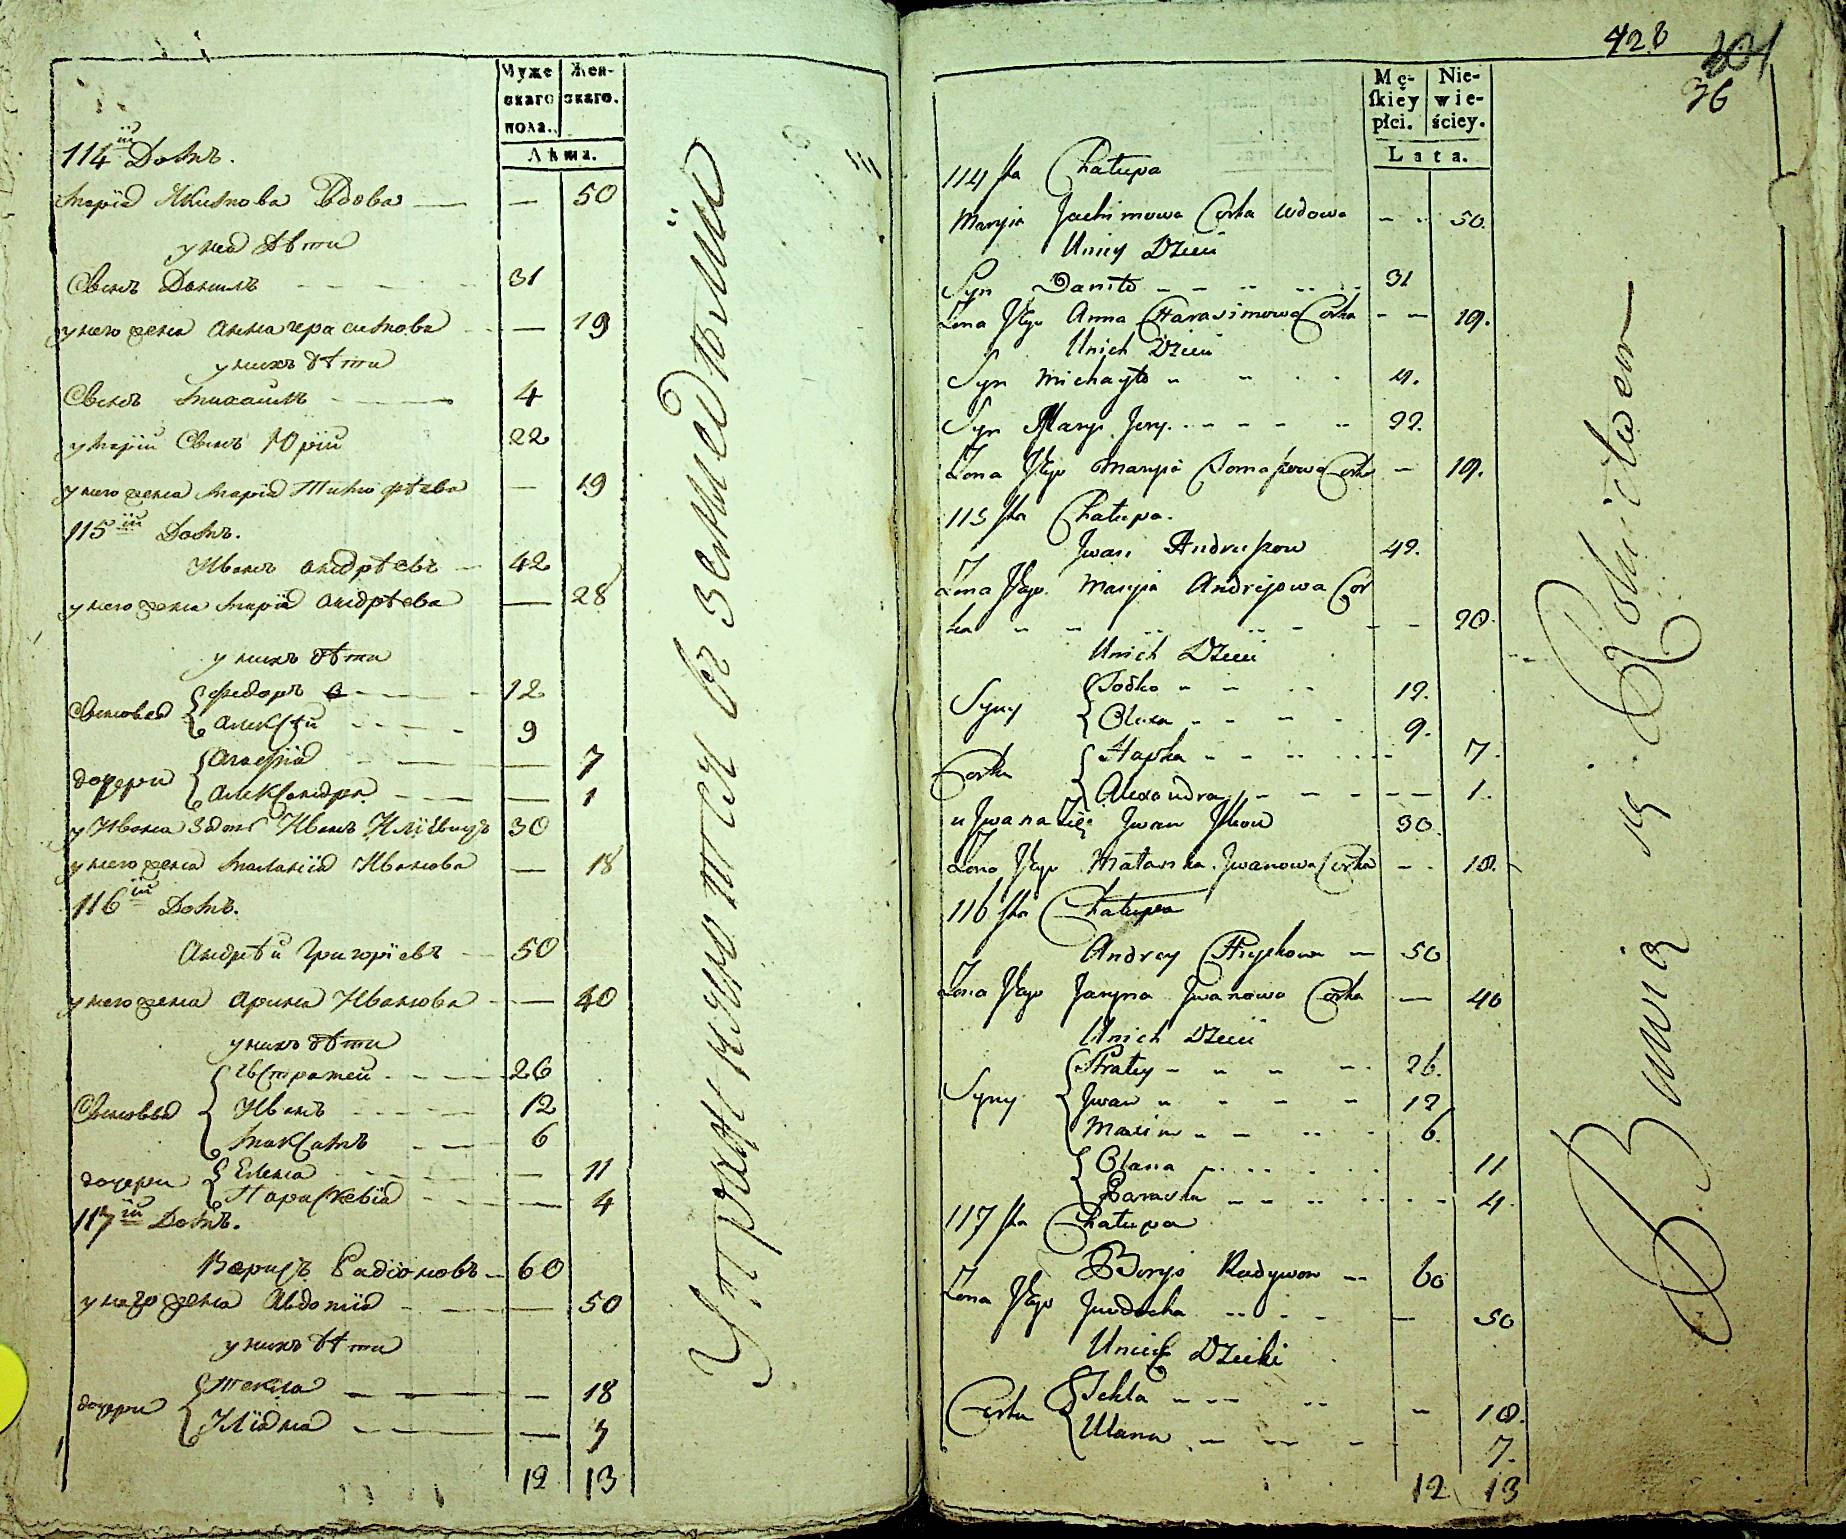 Муже
скаго
пола.
Жен-
скаго.
Лѣта.
114й Домъ.
Марія Якимова Вдова — — 50
у нея дѣти
Сынъ Данилъ 31
у него жена Анна герасимова — 19
у нихъ дѣти
Сынъ Михаилъ 4
у Маріи Сынъ Юрій 22
у него жена Марія Тимофѣева — 19
115й Домъ.
Иванъ Андрѣевъ 42
у него жена Марія Андрѣева — 28
у нихъ дѣти
Сыновья Федоръ 12
Алексѣй 9
дочери Агафія 7
Александра — 1
у Ивана зять Иванъ Иліевичъ 30
у него жена Маланія Иванова — 18
116й Домъ.
Андрѣй Григоріевъ 50
у него жена Арина Иванова — 40
у нихъ дѣти
Евстратей 26
Сыновья Иванъ 12
Максимъ 6
дочери Елена — 11
Параскевія — 4
117й Домъ.
Борисъ Радіоновъ 60
у него жена Авдотія — 50
у нихъ дѣти
дочери Текла — 18
Уліяна — 7
12 13
428
36
Mę-
skiey
płci.
Nie-
wie-
ściey.
Lata.
114sta Chałupa
Maryia Jachimowa Corka Wdowa - - 50.
Uniey Dzieci
Syn Daniło 31
Żona Jego Anna Harasimowa Corka - - 19.
Unich Dzieci
Syn Michayło 4.
Syn Maryi Jery 22.
Żona Jego Maryia Tomaszowa Corka - 19.
115sta Chałupa.
Jwan Andruszow 42.
Żona Jego Maryia Andrejowa Cor
ka - - 28.
Unich Dzieci
Syny Todko 12.
Olexa 9.
Corki Hapka 7.
Alexandra - - 1.
u Jwana Zięć Jwan Jlkow 30.
Żona Jego Małanka Jwanowa Corka - - 18.
116sta Chałupa
Andrey Hryckow 50
Żona Jego Jaryna Jwanowa Corka — 40
Unich Dzieci
Stratey 26.
Syny Jwan 12
Maxim 6.
Olana 11
Paraska 4.
117sta Chałupa
Borys Radywon 60
Żona Jego Juwdocha — 50
Unich Dzieci
Corki Tekla - 18.
Ulana 7.
12 13